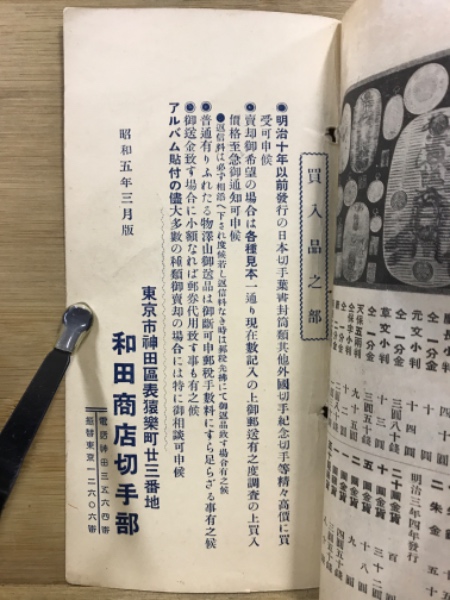 買入品之部
●明治十年以前發行の日本切手葉書封筒類其他外國切手紀念切手等精々高價に買
受可申候
●賣却御希望の場合は各種見本一通り現在數記入の上御郵送有之度調査の上買入
價格至急御通知可申候
●返信料は必ず相添へ下され度候若し返信料なき時は郵稅先拂にて御返品致す場合有之候
●普通有りふれたる物澤山御送品は御斷可申郵稅手數料にすら足らざる事有之候
●御送金致す場合に小額なれば郵券代用致す事も有之候
アルバム貼付の儘大多數の種類御賣却の場合には特に御相談可申候
昭和五年三月版
東京市神田區表猿樂町廿三番地
和田商店切手部
電話神田三五六四番
振替東京一二六〇六番
元文小判
仝一分金
草文小判
仝一分金
仝保字小判
天保五兩判
明治三年四年發行
二十圓金貨
十圓金貨
五圓金貨
二圓金貨
一圓金貨
二朱金